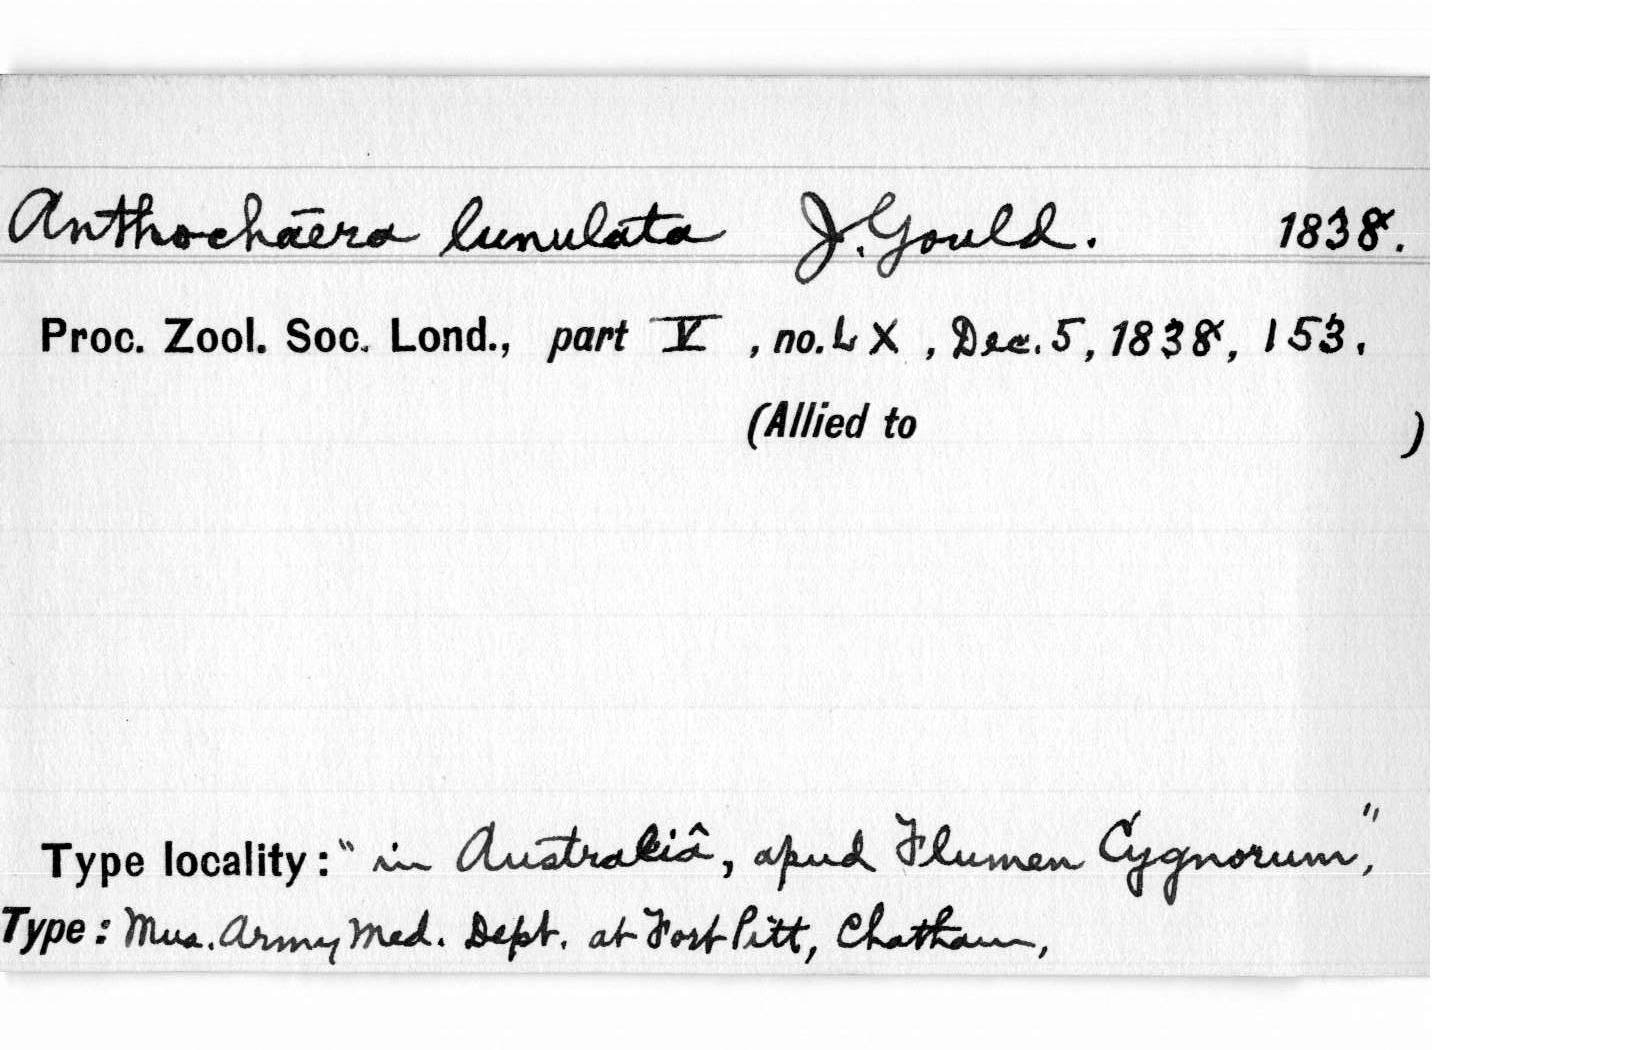 Anthochāēra lunulata J. Gould. 1838.
Proc. Zool. Soc. Lond., part V, no. LX, Dec. 5, 1838, 153.
(Allied to )
Type locality: "in Australiâ, apud Flumen Cygnorum",
Type: Mus. Army Med. Dept. at Fort Pitt, Chatham,